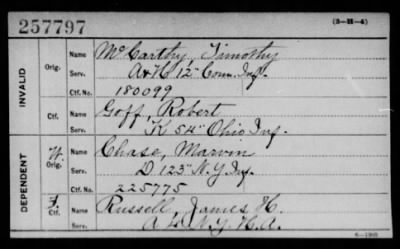 257797 (3-H-4)
INVALID
Orig.
Name McCarthy, Timothy
Serv. A & K 12" Conn. Inf.
Ctf. No. 180099
Ctf.
Name Goff, Robert
Serv. K 54" Ohio Inf.
DEPENDENT
W. Orig.
Name Chase, Marvin
Serv. D 123" N.Y. Inf.
Ctf. No. 225775
Ctf.
Name Russell, James H.
Serv. A 4 N.Y. H.A.
6-1903